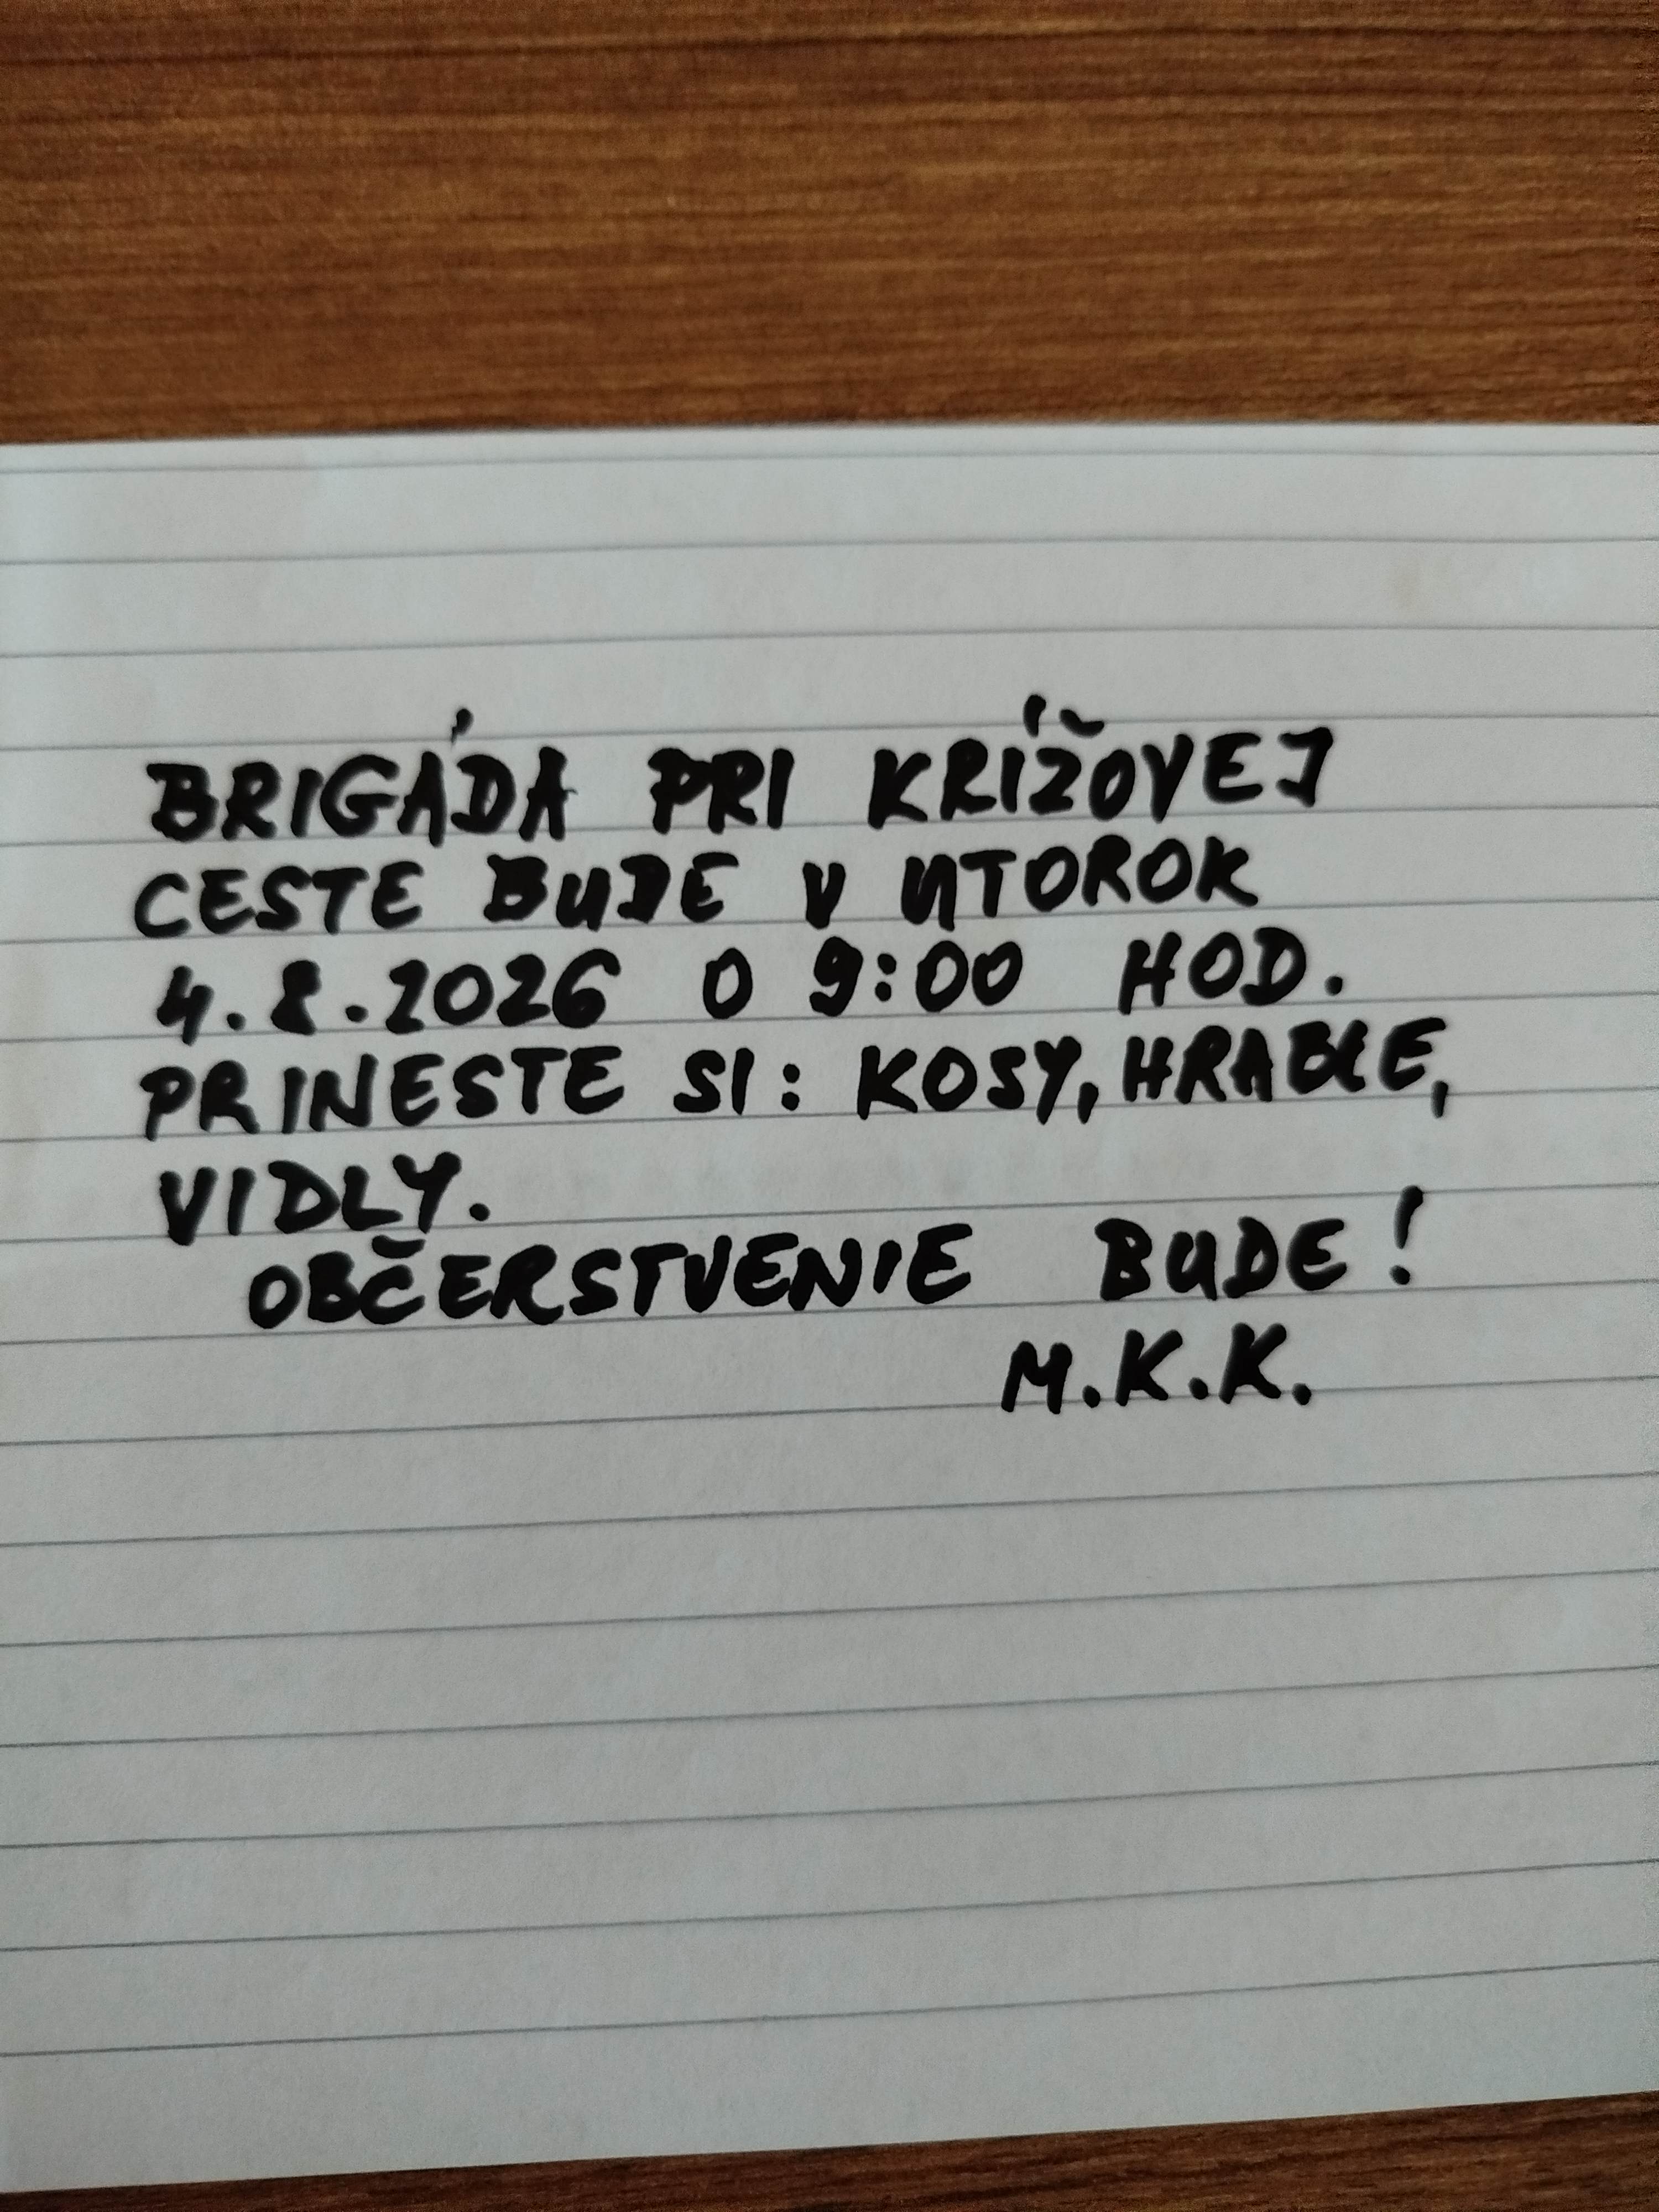 BRIGÁDA PRI KRÍŽOVEJ
CESTE BUDE V UTOROK
4.8.2026 O 9:00 HOD.
PRINESTE SI: KOSY, HRABLE,
VIDLY.
OBČERSTVENIE BUDE!
M.K.K.